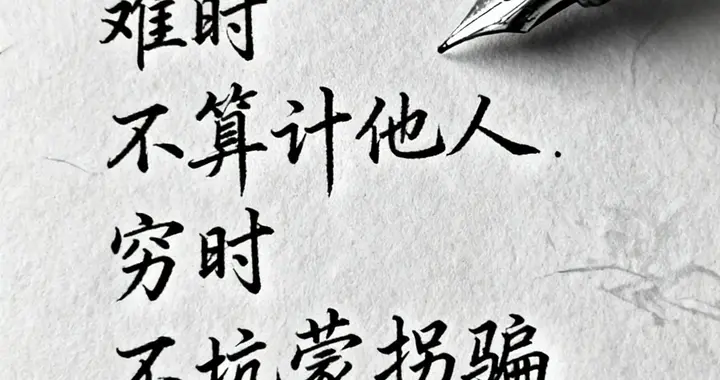 难时
不算计他人.
穷时
不坑蒙拐骗